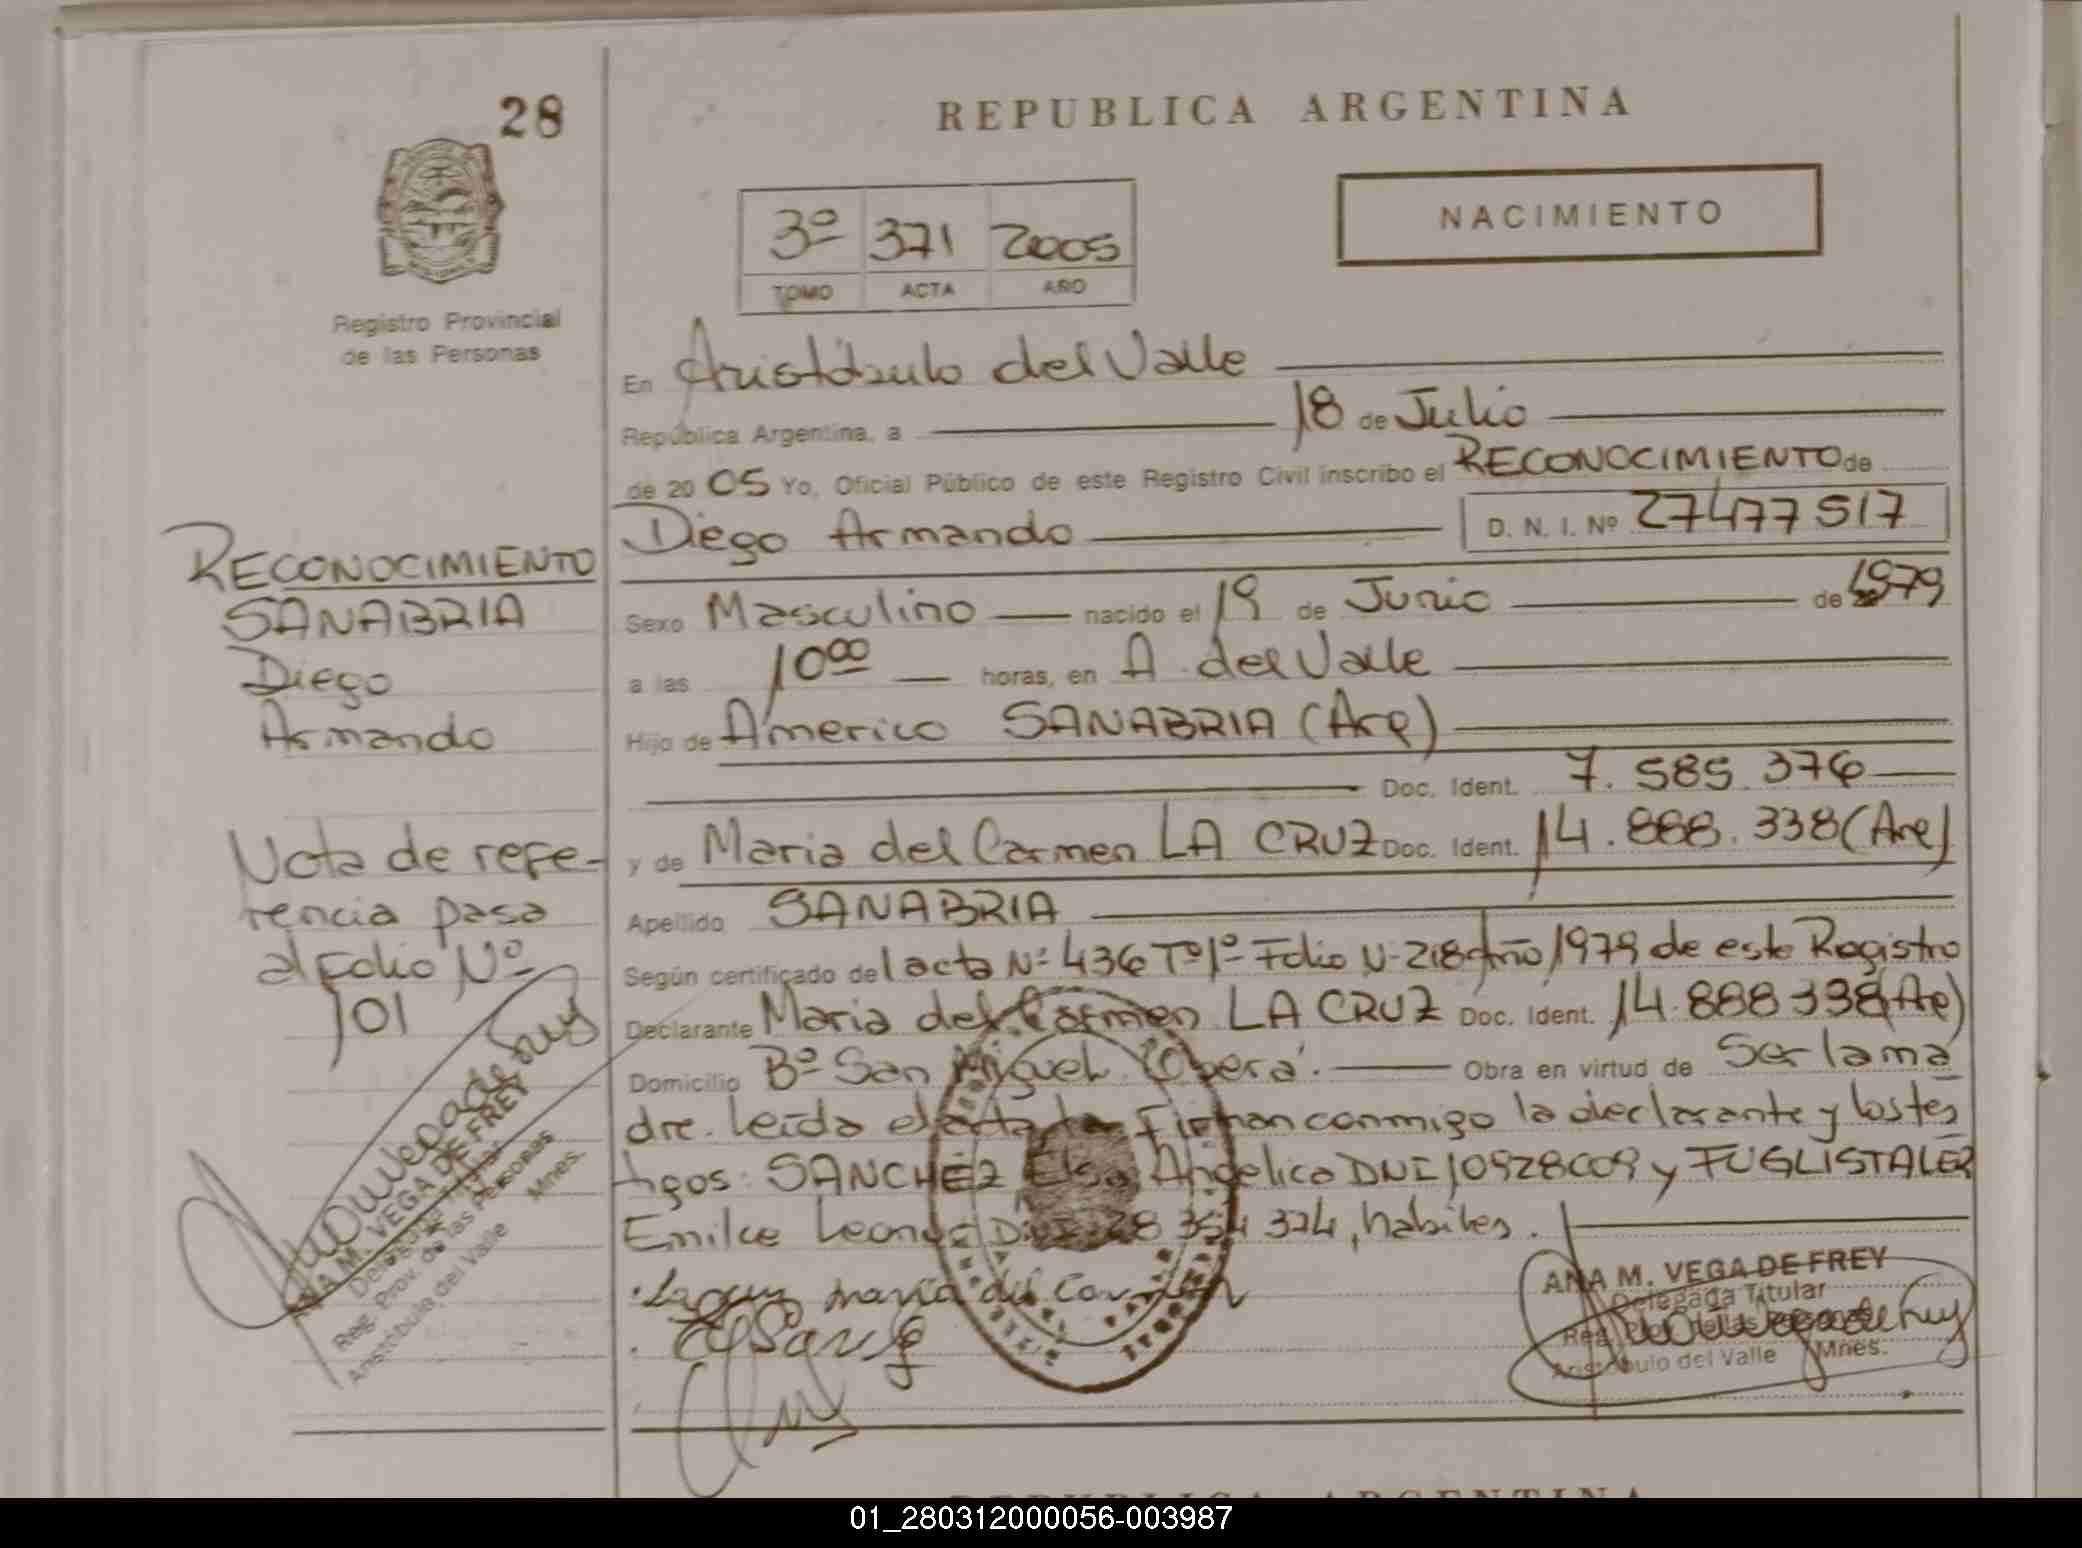 28
REPUBLICA ARGENTINA
NACIMIENTO
3º 371 2005
TOMO ACTA AÑO
Registro Provincial
de las Personas
En Aristóbulo del Valle
República Argentina, a 18 de Julio
de 2005 Yo, Oficial Público de este Registro Civil inscribo el RECONOCIMIENTO de
Diego Armando D. N. I. Nº 27477517
Sexo Masculino nacido el 19 de Junio de 1979
a las 10ºº horas, en A. del Valle
Hijo de Américo SANABRIA (Arg)
Doc. Ident. 7.585.376
y de Maria del Carmen LA CRUZ Doc. Ident. 14.888.338 (Arg)
Apellido SANABRIA
Según certificado del acta Nº 436 Tº 1º Folio Nº 218 Año 1979 de este Registro
Declarante Maria del Carmen LA CRUZ Doc. Ident. 14.888338 (Arg)
Domicilio Bº San Miguel Oberá. Obra en virtud de Ser la ma
dre. Leída el acta la Firman conmigo la declarante y los tes
tigos: SANCHEZ Elsa Angelica DNI 10928009 y FUGLISTALER
Emilce Leonor DNI 28 354 374, habiles.
maria del Carmen
ANA M. VEGA DE FREY
Delegada Titular
Reg. Prov. de las Personas
Aristóbulo del Valle Mnes.
RECONOCIMIENTO
SANABRIA
Diego
Armando
Nota de refe-
rencia pasa
al Folio Nº
101
ANA M. VEGA DE FREY
Delegada Titular
Reg. Prov. de las Personas
Aristóbulo del Valle Mnes.
REPUBLICA ARGENTINA
01_280312000056-003987